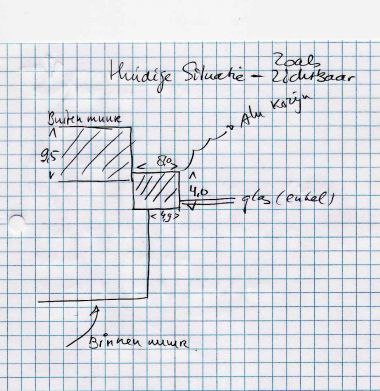 Huidige Situatie - Zoals
Zichtbaar
Buiten muur
Alu Kozijn
9,5
8,0
4,0
glas (enkel)
4,9
Binnen muur.